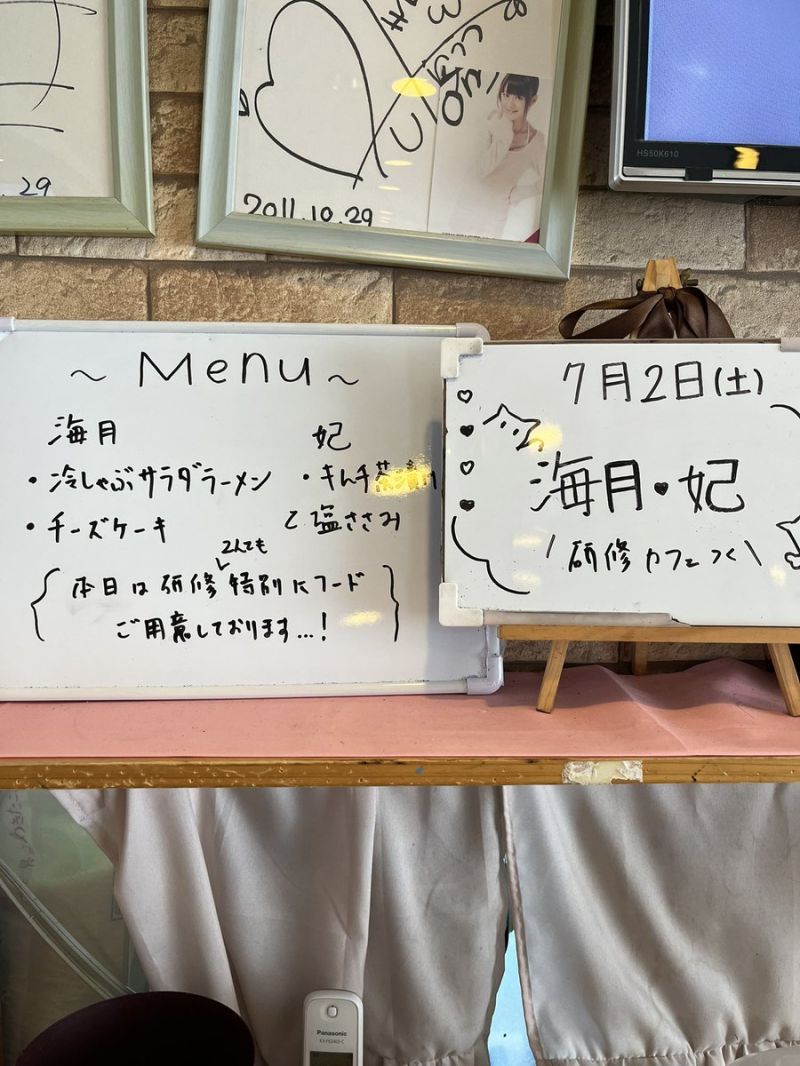 29
2011.10.29
HS50K610
~ Menu ~
海月
・冷しゃぶサラダラーメン
・チーズケーキ
妃
・キムチ茶漬け
と塩ささみ
なんでも
本日は研修特別にフード
ご用意しております…!
7月2日(土)
海月♥妃
\研修カフェっく\
Panasonic